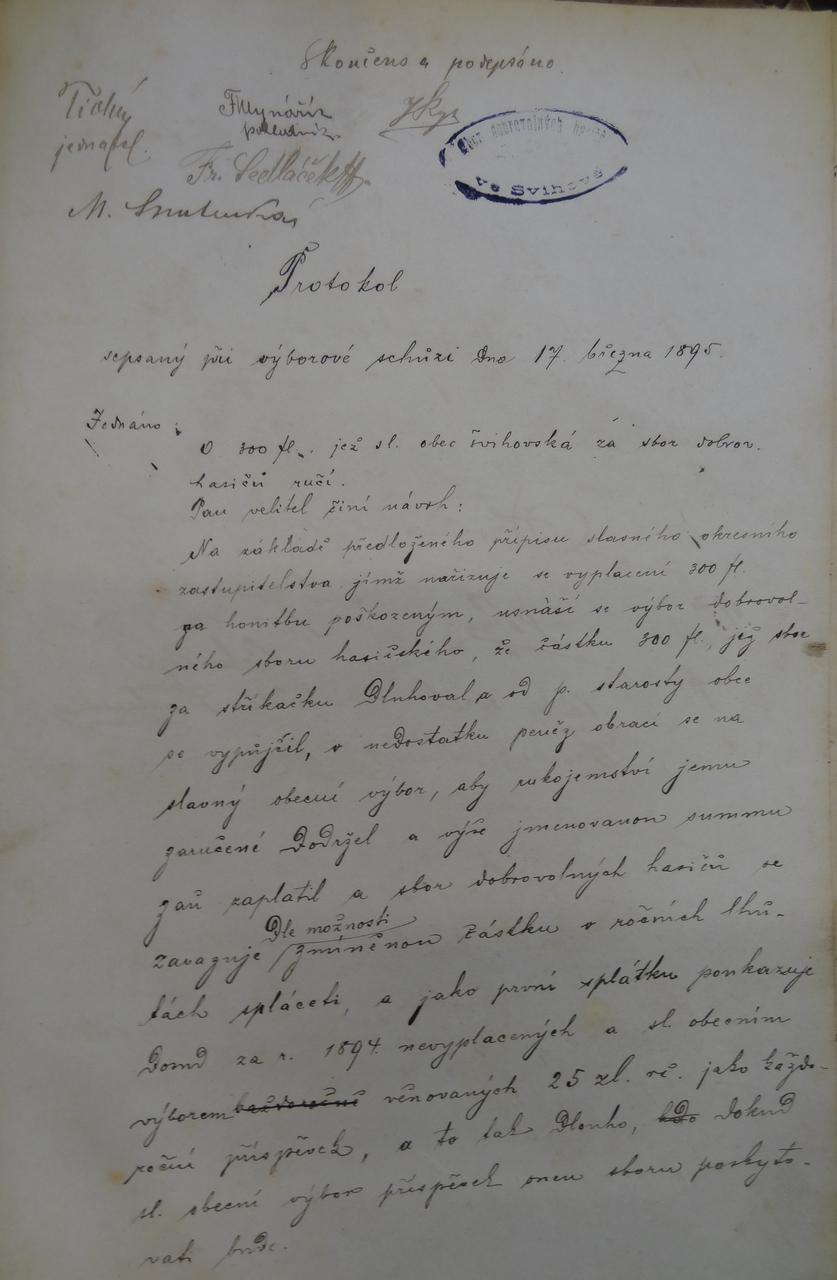 Skončeno a podepsáno.
Tichý
jednatel.
F Mlynařík
pokladník
Fr. Sedláček
M.
Sbor dobrovolných hasičů
ve Švihově
Protokol
sepsaný při výborové schůzi dne 17. března 1895.
Jednáno:
O 300 fl. jež sl. obec švihovská za sbor dobrov.
hasičů ručí.
Pan velitel činí návrh:
Na základě předloženého přípisu slavného okresního
zastupitelstva jímž nařizuje se vyplacení 300 fl.
za honitbu poškozeným, usnáší se výbor dobrovol-
ného sboru hasičského, že částku 300 fl., jež sbor
za stříkačku dluhoval a od p. starosty obce
se vypůjčil, v nedostatku peněz obrací se na
slavný obecní výbor, aby rukojemství jemu
zaručené dodržel a výše jmenovanou summu
zaň zaplatil a sbor dobrovolných hasičů se
zavazuje dle možnosti zmíněnou částku v ročních lhů-
tách spláceti, a jako první splátku poukazuje
domd za r. 1894 nevyplacených a sl. obecním
výborem každoročně věnovaných 25 zl. rč. jako každo-
roční příspěvek, a to tak dlouho, kdo dokud
sl. obecní výbor příspěvek onen sboru poskyto-
vati bude.